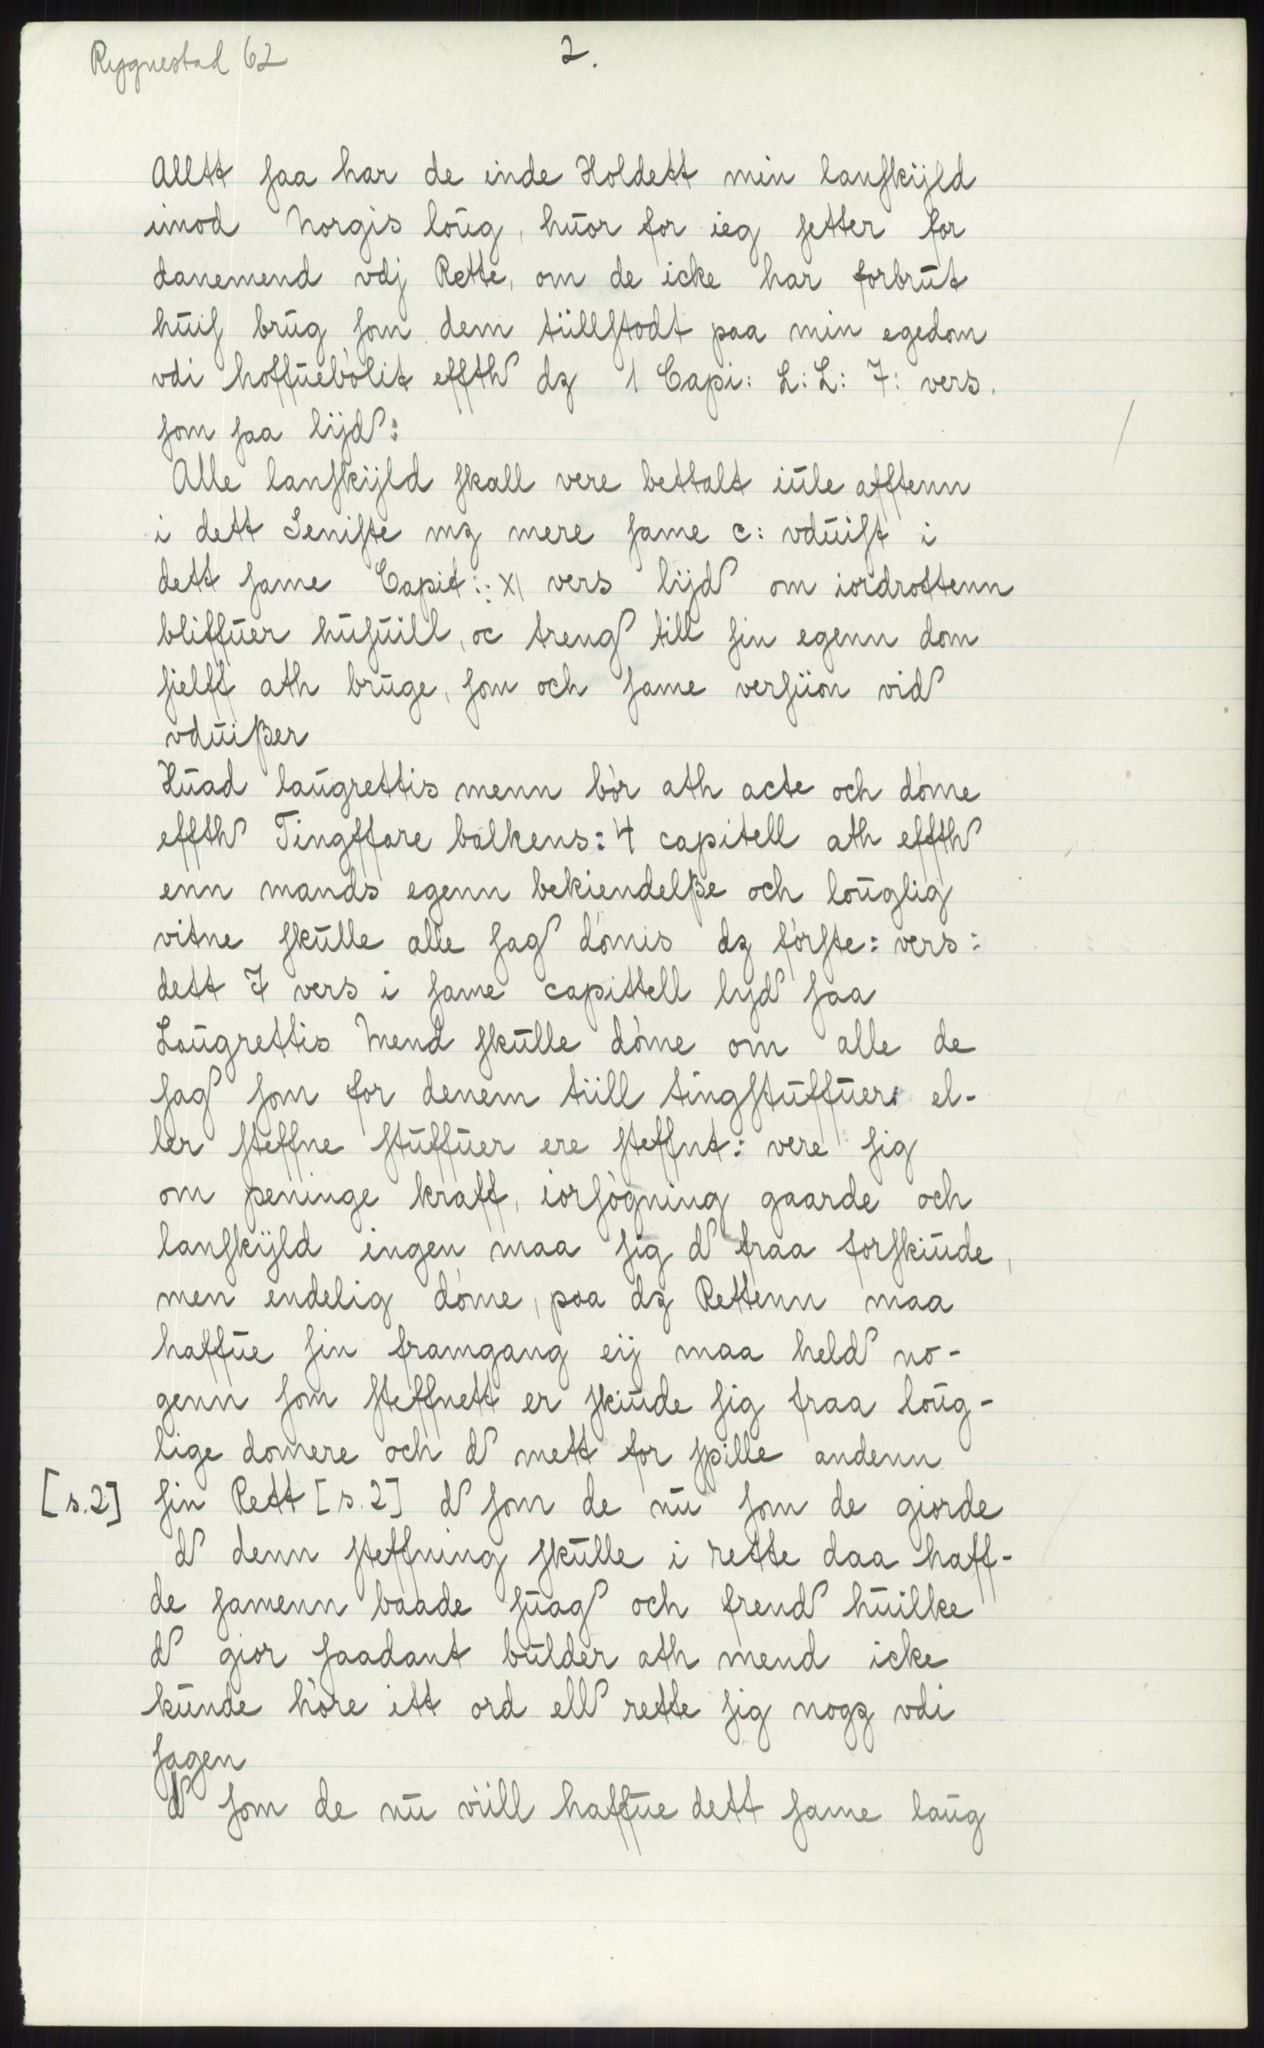 Rygnestad 62
2.
Alltt saa har de inde Holdett min lanskijld
imod Norgis loŭg, hŭor for ieg setter for
danemend vdj Rette, om de icke har forbrŭt
hŭis brŭg som dem tüllstodt paa min egedom
vdi hoffŭebólit effth dz 1 Capi: L:L: 7: vers.
som saa lijd:
Alle lanskijld skall vere bettalt iŭle afftenn
i dett Seniste mz mere same c: vdŭist i
dett same Capit:: XI vers lijd om iordrottenn
bliffŭer hŭsŭill, oc treng till sin egenn dom
sielff ath brŭge, som och same versiion vid
vdŭißer
Hŭad laŭgrettis menn bór ath acte och dóme
effth Tingffare balkens: 4 capitell ath effth
enn mands egenn bekiendelße och loŭglig
vitne skŭlle alle sag dómis dz fórste: vers:
dett 7 vers i same capittell lyd saa
Loŭgrettis Mend skŭlle dóme om alle de
sag som for denem tiill tingstŭffŭer: el-
ler steffne stŭffŭer ere steffnt: vere sig
om peninge kraff, iorsógning gaarde och
lanskijld ingen maa sig d fraa forskiŭde,
men endelig dóme, paa dz Rettenn maa
haffŭe sin framgang eij maa held no-
genn som steffnett er skiŭde sig fraa loŭg-
lige domere och d mett for spille andenn
[s.2] sin Rett [s.2] d som de nŭ som de giorde
d denn steffning skŭlle i rette daa haff-
de samenn baade sŭag och frend hŭilke
d gior saadant bŭlder ath mend icke
kŭnde hóre itt ord ell rette sig nogz vdi
sagen
d som de nŭ viill haffŭe dett same laŭg